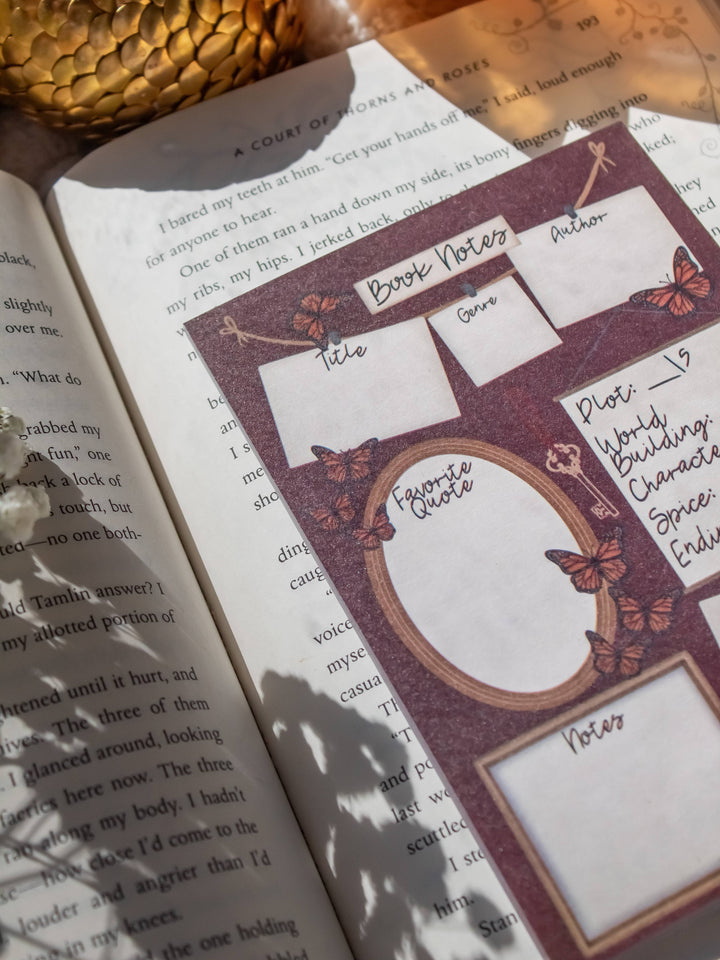 193
A COURT OF THORNS AND ROSES
I bared my teeth at him. “Get your hands off me,” I said, loud enough
for anyone to hear.
One of them ran a hand down my side, its bony fingers digging into
my ribs, my hips. I jerked back, only
who
ked;
they
Book Notes
Author
Genre
Title
Favorite
Quote
Plot: __/5
World
Building:
Spice:
Notes
slightly
over me.
“What do
grabbed my
fun,” one
back a lock of
touch, but
no one both-
Tamlin answer? I
my allotted portion of
until it hurt, and
The three of them
I glanced around, looking
faeries here now. The three
ran along my body. I hadn’t
how close I’d come to the
louder and angrier than I’d
in my knees.
the one holding
voice
myse
casua
and
last
scuttled
him.
Stan